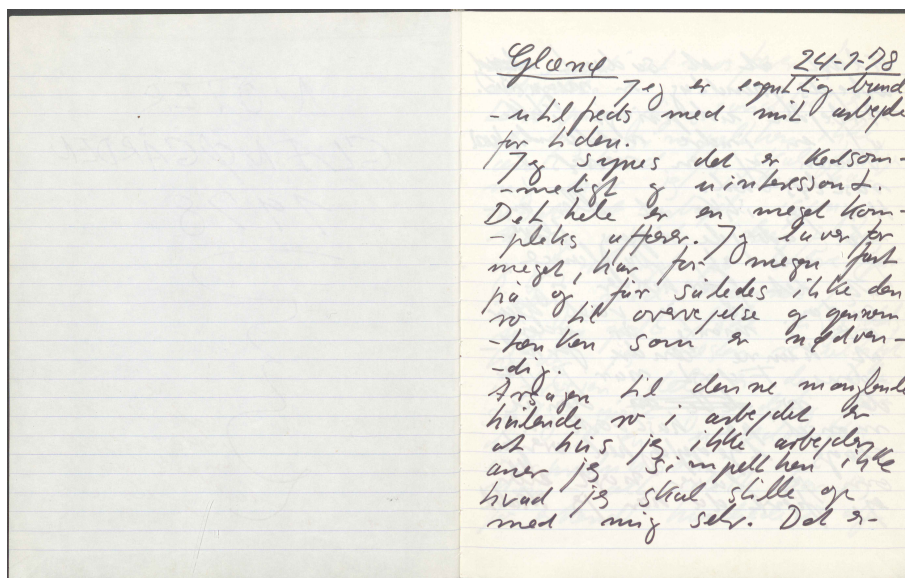 Glænø 24-7-78
Jeg er egentlig brand
-utilfreds med mit arbejde
for tiden.
Jeg synes det er kedsom-
-meligt og uinteressant.
Det hele er en meget kom-
-pleks affære. Jeg laver for
meget, har for megen fart
på og får således ikke den
ro til overvejelse og gennem
-tænken som er nødven-
-dig.
Årsagen til denne manglende
hvilende ro i arbejdet er
at hvis jeg ikke arbejder
aner jeg simpelthen ikke
hvad jeg skal stille op
med mig selv. Det er-